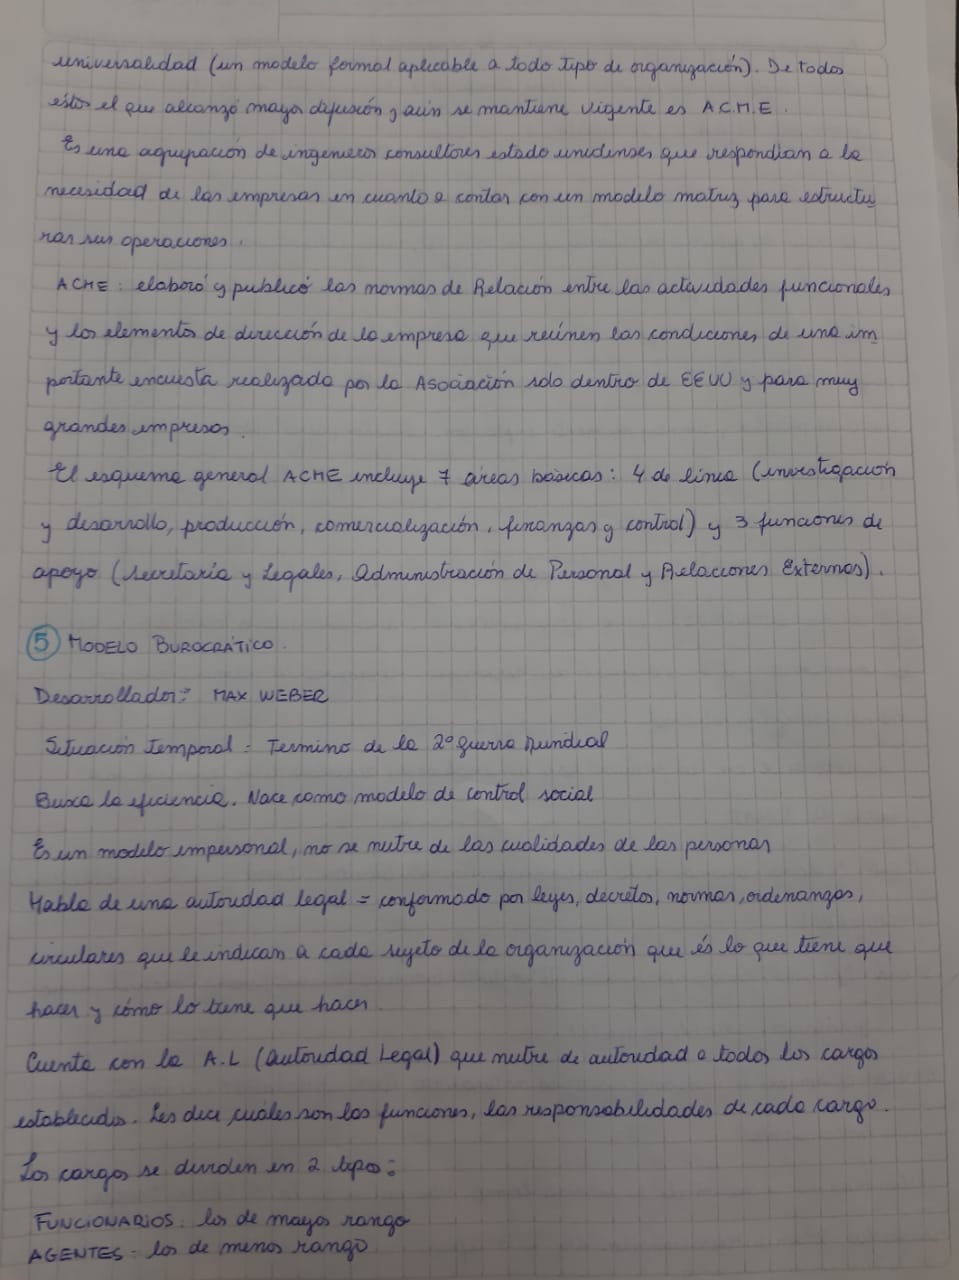 universalidad (un modelo formal aplicable a todo tipo de organización). De todos
éstos el que alcanzó mayor difusión y aún se mantiene vigente es A.C.M.E.
Es una agrupación de ingenieros consultores estado unidenses que respondian a la
necesidad de las empresas en cuanto a contar con un modelo matriz para estructu
rar sus operaciones.
ACME: elaboró y publicó las normas de Relación entre las actividades funcionales
y los elementos de dirección de la empresa que reúnen las condiciones de una im
portante encuesta realizada por la Asociación solo dentro de EEUU y para muy
grandes empresas.
El esquema general ACME incluye 7 áreas básicas: 4 de línea (investigación
y desarrollo, producción, comercialización, finanzas y control) y 3 funciones de
apoyo (Secretaría y Legales, Administración de Personal y Relaciones Externas).
5 MODELO BUROCRÁTICO.
Desarrollador: MAX WEBER
Situación Temporal = Termino de la 2º guerra Mundial
Busca la eficiencia. Nace como modelo de control social
Es un modelo impersonal, no se nutre de las cualidades de las personas
Habla de una autoridad legal = conformado por leyes, decretos, normas, ordenanzas,
circulares que le indican a cada sujeto de la organización que és lo que tiene que
hacer y cómo lo tiene que hacer.
Cuenta con la A.L (autoridad Legal) que nutre de autoridad a todos los cargos
establecidos. Les dice cuáles son las funciones, las responsabilidades de cada cargo.
Los cargos se dividen en 2 tipos:
FUNCIONARIOS: los de mayor rango
AGENTES = los de menor rango